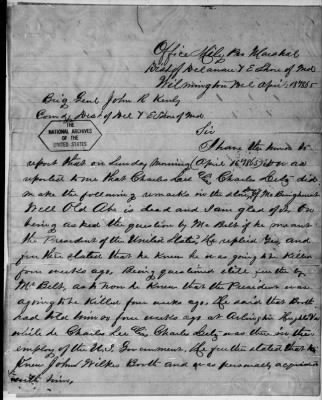 Office Mily Pro Marshal
Dist of Delaware & E Shore of Md
Wilmington Del April 1865
Brig Genl John R Kenly
Comdg Dist of Del & E Shore of Md
THE
NATIONAL ARCHIVES
OF THE
UNITED STATES
Sir
I have the honor to
report that on Sunday Morning (April 16" 1865) it was
reported to me that Charles Lee Charles Lutz did
make the following remarks in the store of
Well Old Abe is dead and I am glad of it. On
being asked the question by Mr Belt if he meant
the President of the United States, He replied Yes, and
further stated that he knew he was going to be Killed
four weeks ago. Being questioned still further by
Mr Belt, as to how he knew that the President was
a going to be Killed four weeks ago. He said that Booth
had told him so four weeks ago at Arlington Heights Va
while he Charles Lee Charles Lutz was then in the
employ of the U.S. Government. He further stated that he
Knew John Wilkes Booth and was personally acquainted
with him.